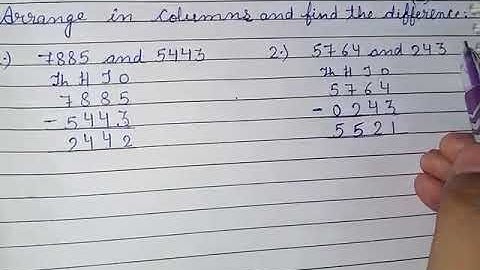 Arrange in columns and find the difference:
1.) 7885 and 5443
Th H T O
7 8 8 5
- 5 4 4 3
2 4 4 2
2.) 5764 and 243
Th H T O
5 7 6 4
- 0 2 4 3
5 5 2 1